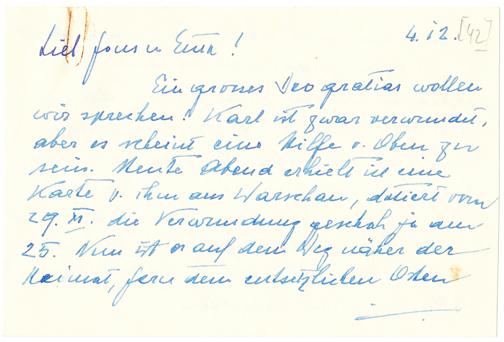 4.12. [42]
Lieb
Ein grosses Deo gratias wollen
wir sprechen! Karl ist zwar verwundet,
aber es scheint eine Hilfe v. Oben zu
sein. Heute Abend erhielt ich eine
Karte v. ihm aus Warschau, datiert vom
29. XI. die Verwundung geschah ja am
25. Nun ist er auf dem Weg näher der
Heimat, fern dem entsetzlichen Osten